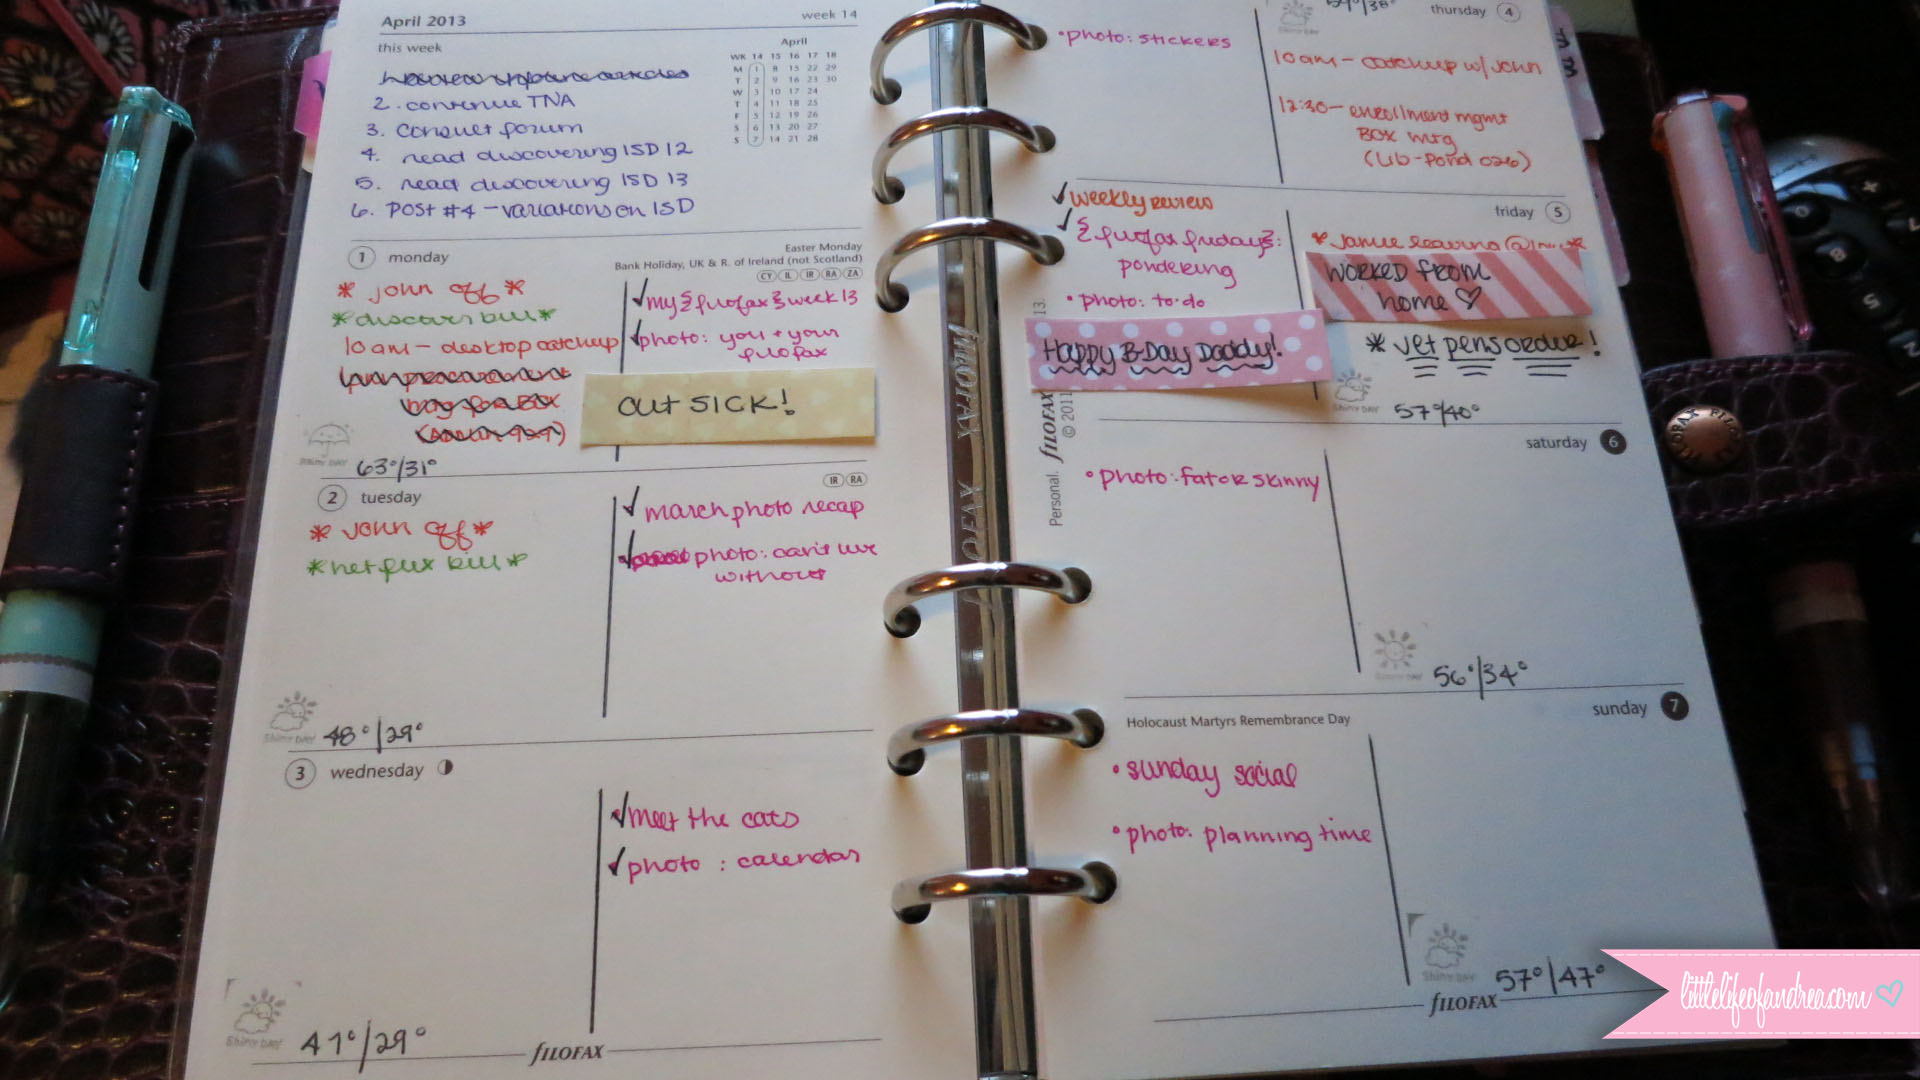 April 2013
week 14
this week
April
WK 14 15 16 17 18
M 1 8 15 22 29
T 2 9 16 23 30
W 3 10 17 24
T 4 11 18 25
F 5 12 19 26
S 6 13 20 27
S 7 14 21 28
2. continue TNA
3. conquer forum
4. read discovering ISD 12
5. read discovering ISD 13
6. POST #4 - variations on ISD
1 monday
Easter Monday
Bank Holiday, UK & R. of Ireland (not Scotland)
CY IL IR RA ZA
* John off *
*discover bill*
10am - desktop catchup
my {filofax} week 13
photo: you + your
filofax
OUT SICK!
SHINY DAY
63°/31°
2 tuesday
IR RA
* John off *
*netflix bill*
march photo recap
photo: can't live
without
SHINY DAY
48°/29°
3 wednesday
meet the cats
photo : calendar
SHINY DAY
47°/29°
fILOFAX
thursday 4
SHINY DAY
59°/38°
•photo: stickers
10am - catchup w/ John
12:30 - enrollment mgmt
BOX mtg
(Lib-Pond 026)
friday 5
weekly review
{filofax friday}:
pondering
• photo: to-do
Happy B-Day Daddy!
WORKED FROM
home ♡
* Jet pens order!
SHINY DAY
57°/40°
Personal. fILOFAX © 2011
13.
fILOFAX
fILOFAX
saturday 6
• photo: fat or skinny
SHINY DAY
56°/34°
sunday 7
Holocaust Martyrs Remembrance Day
• sunday social
• photo: planning time
SHINY DAY
57°/47°
fILOFAX
littlelifeofandrea.com